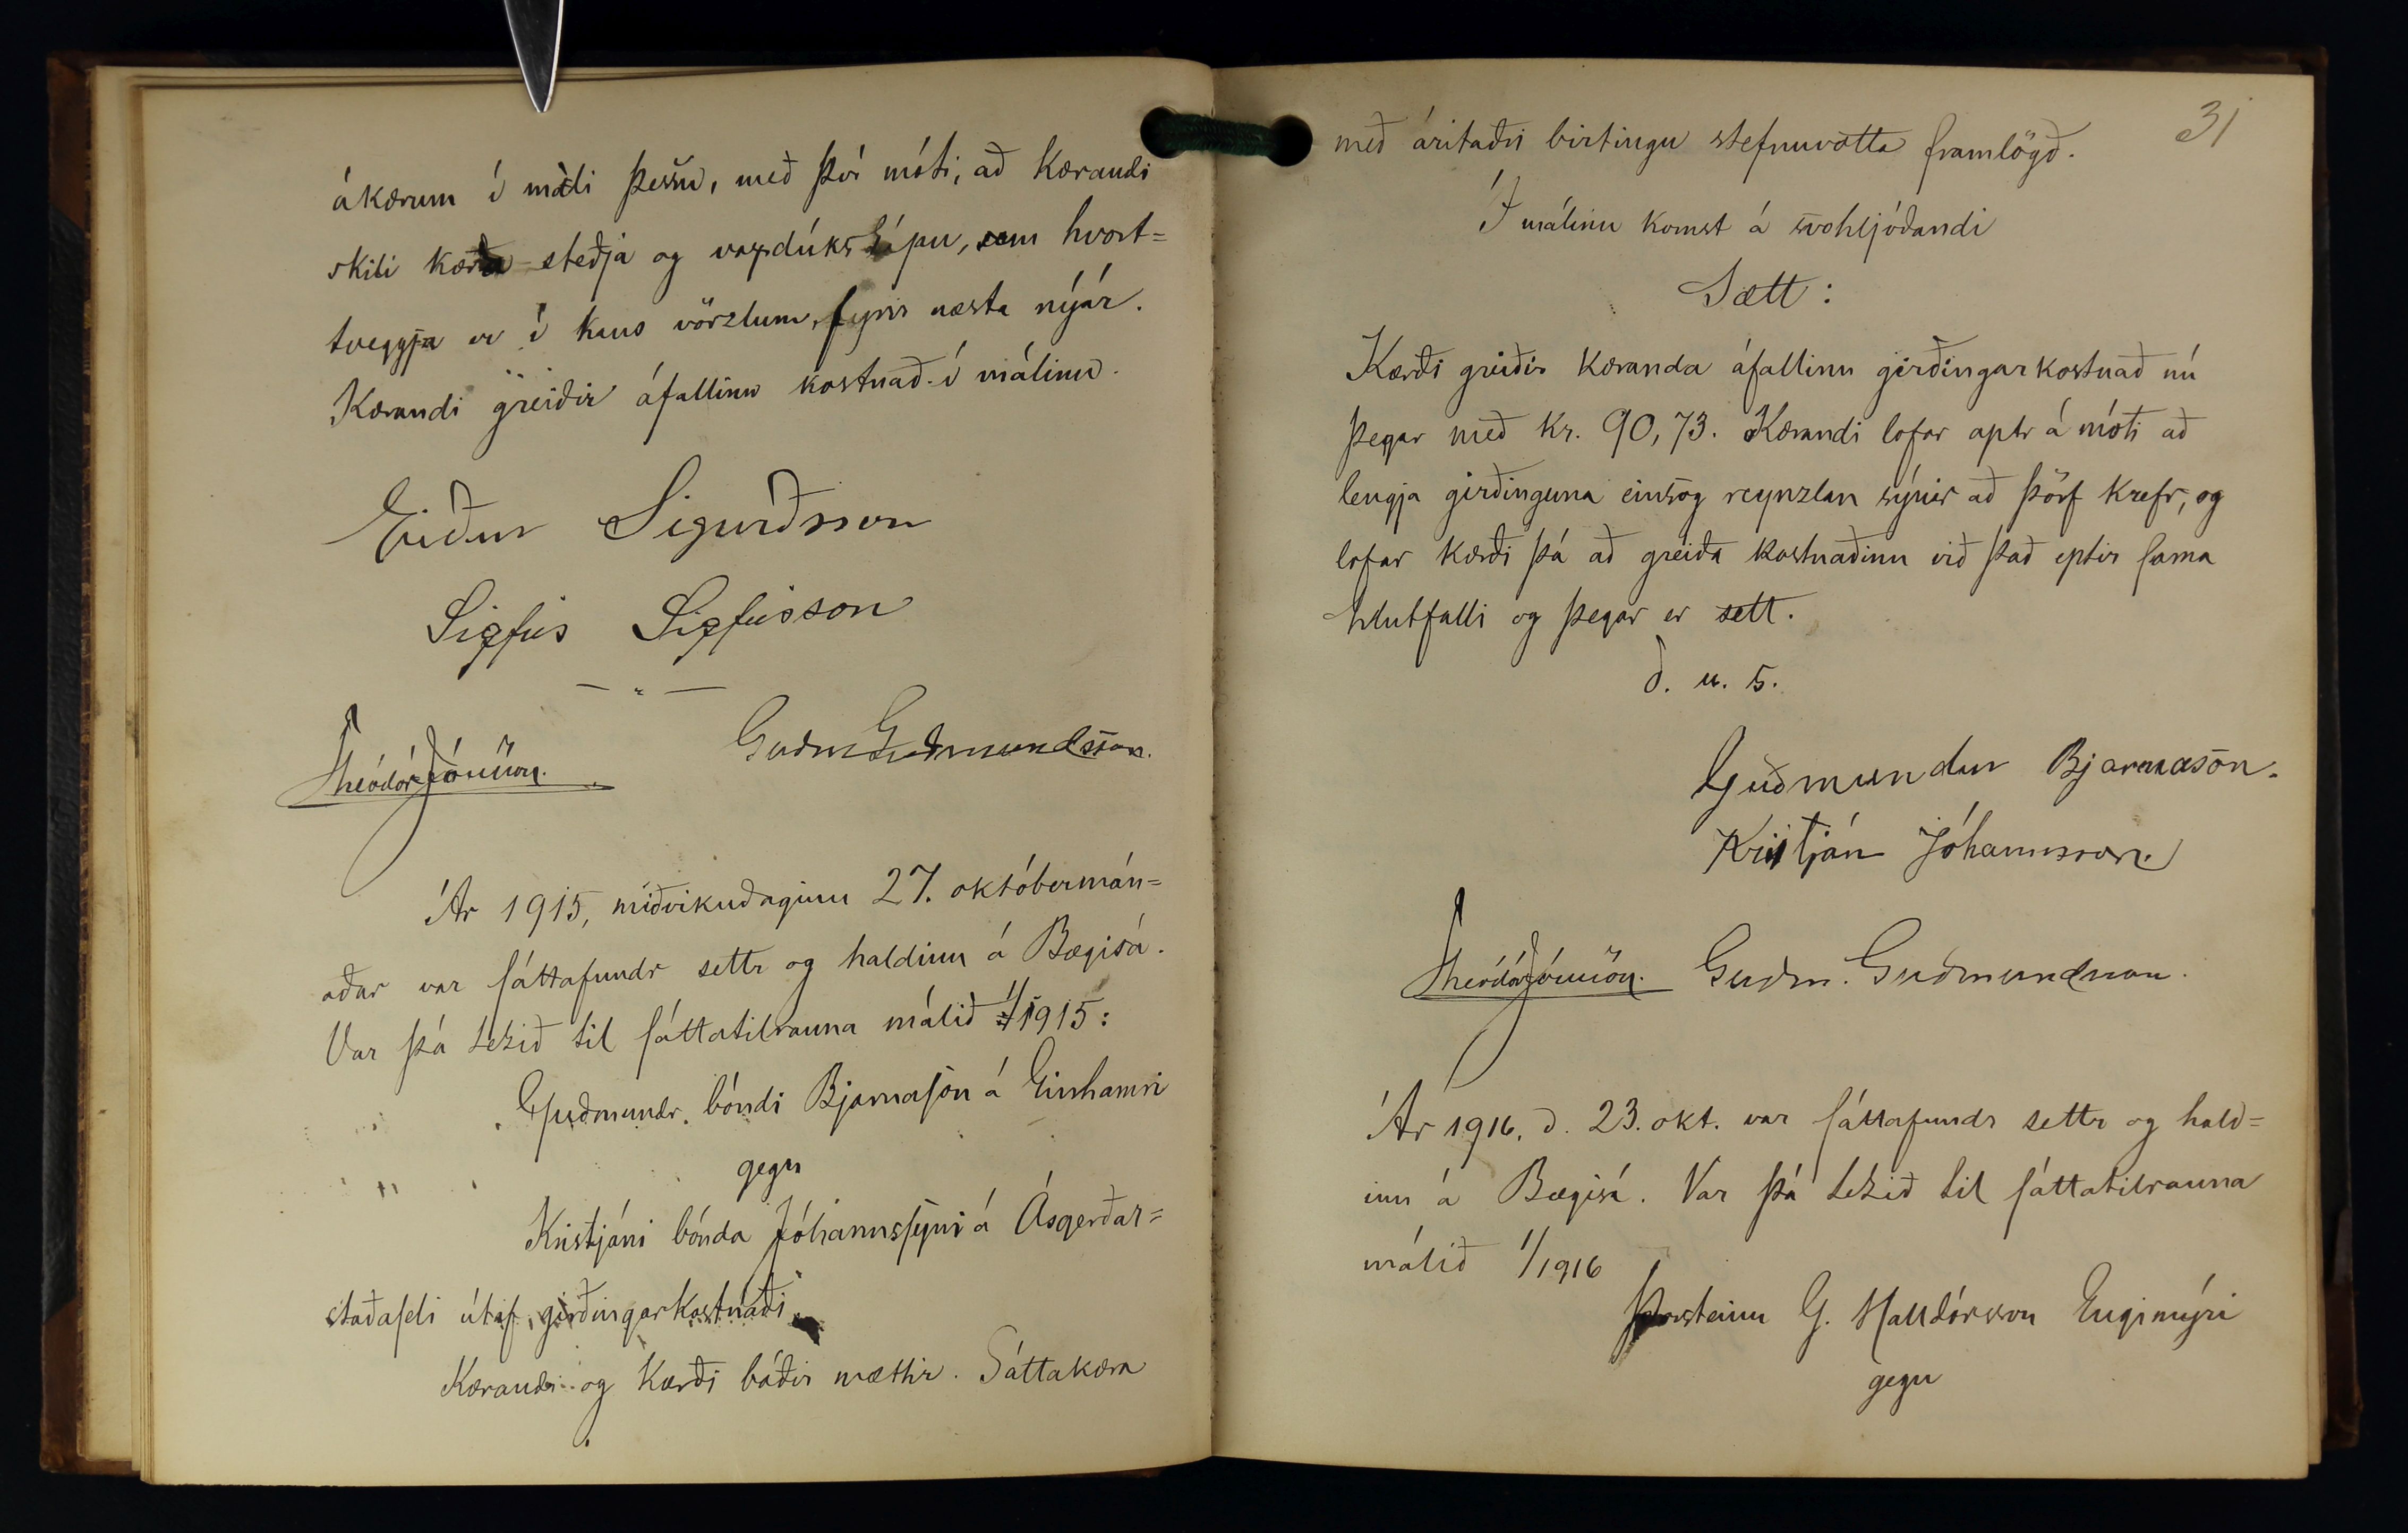 ákærum í máli þessu, með því móti, að kærandi
skili kærða steðja og vaxdúkskápu, sem hvort=
tveggja er í hans vörzlum, fyrir næsta nýár.
Kærandi greiðir áfallinn kostnað í málinu.
Eiður Sigurðsson
Sigfús Sigfússon
— " —
Guðm Guðmundsson.
Theódór Jónsson.
Ár 1915, miðvikudaginn 27. októbermán=
aðar var sáttafundr settr og haldinn á Bægisá.
Var þá tekið til sáttatilrauna málið 1/1915:
Guðmundr bóndi Bjarnason á Einhamri
gegn
Kristjáni bónda Jóhannssyni á Ásgerðar=
staðaseli útaf girðingarkostnaði.
Kærandi og kærði báðir mættir. Sáttakæra
31
með áritaðri birtingu stefnuvotta framlögð.
Í málinu komst á svohljóðandi
Sætt:
Kærði greiðir kæranda áfallinn girðingarkostnað nú
þegar með kr. 90,73. Kærandi lofar aptr á móti að
lengja girðinguna einsog reynzlan sýnir að þörf krefr, og
lofar kærði þá að greiða kostnaðinn við það eptir sama
hlutfalli og þegar er sett.
D. u. s.
Guðmundur Bjarnason.
Kristján Jóhannsson.
Theódór Jónsson. Guðm. Guðmundsson.
Ár 1916, d. 23. okt. var sáttafundr settr og hald=
inn á Bægisá. Var þá tekið til sáttatilrauna
málið 1/1916
Þorsteinn G. Halldórsson Engimýri
gegn